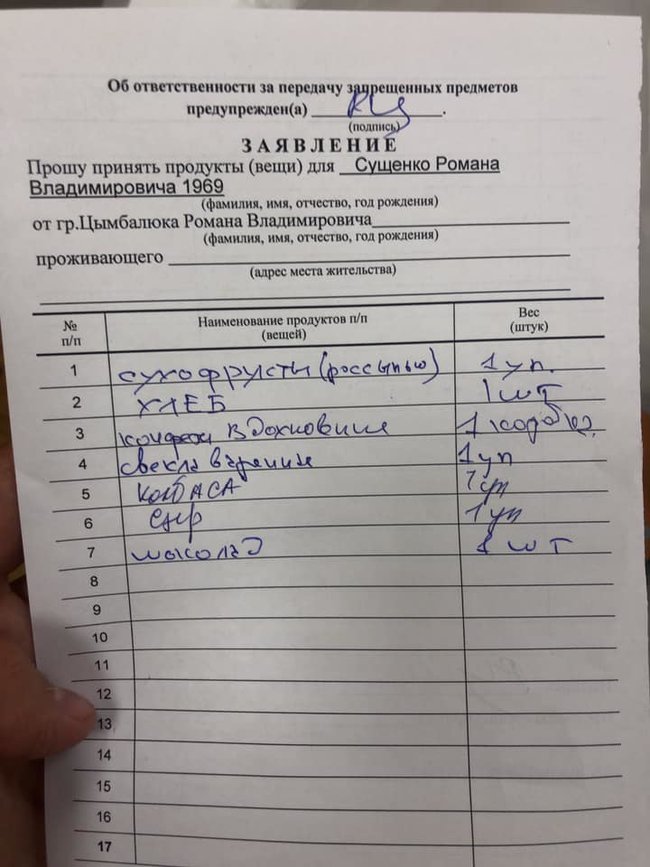 Об ответственности за передачу запрещенных предметов
предупрежден(а)
(подпись)
ЗАЯВЛЕНИЕ
Прошу принять продукты (вещи) для Сущенко Романа
Владимировича 1969
(фамилия, имя, отчество, год рождения)
от гр.Цымбалюка Романа Владимировича
(фамилия, имя, отчество, год рождения)
проживающего
(адрес места жительства)
№ п/п Наименование продуктов п/п (вещей) Вес (штук)
1 сухофрукты (россыпью) 1 уп.
2 ХЛЕБ 1 шт
3 Вдохновение 1
4 свекла 1 уп
5 Колбаса
6 сыр 1 уп
7 шоколад 1 шт
8
9
10
11
12
13
14
15
16
17